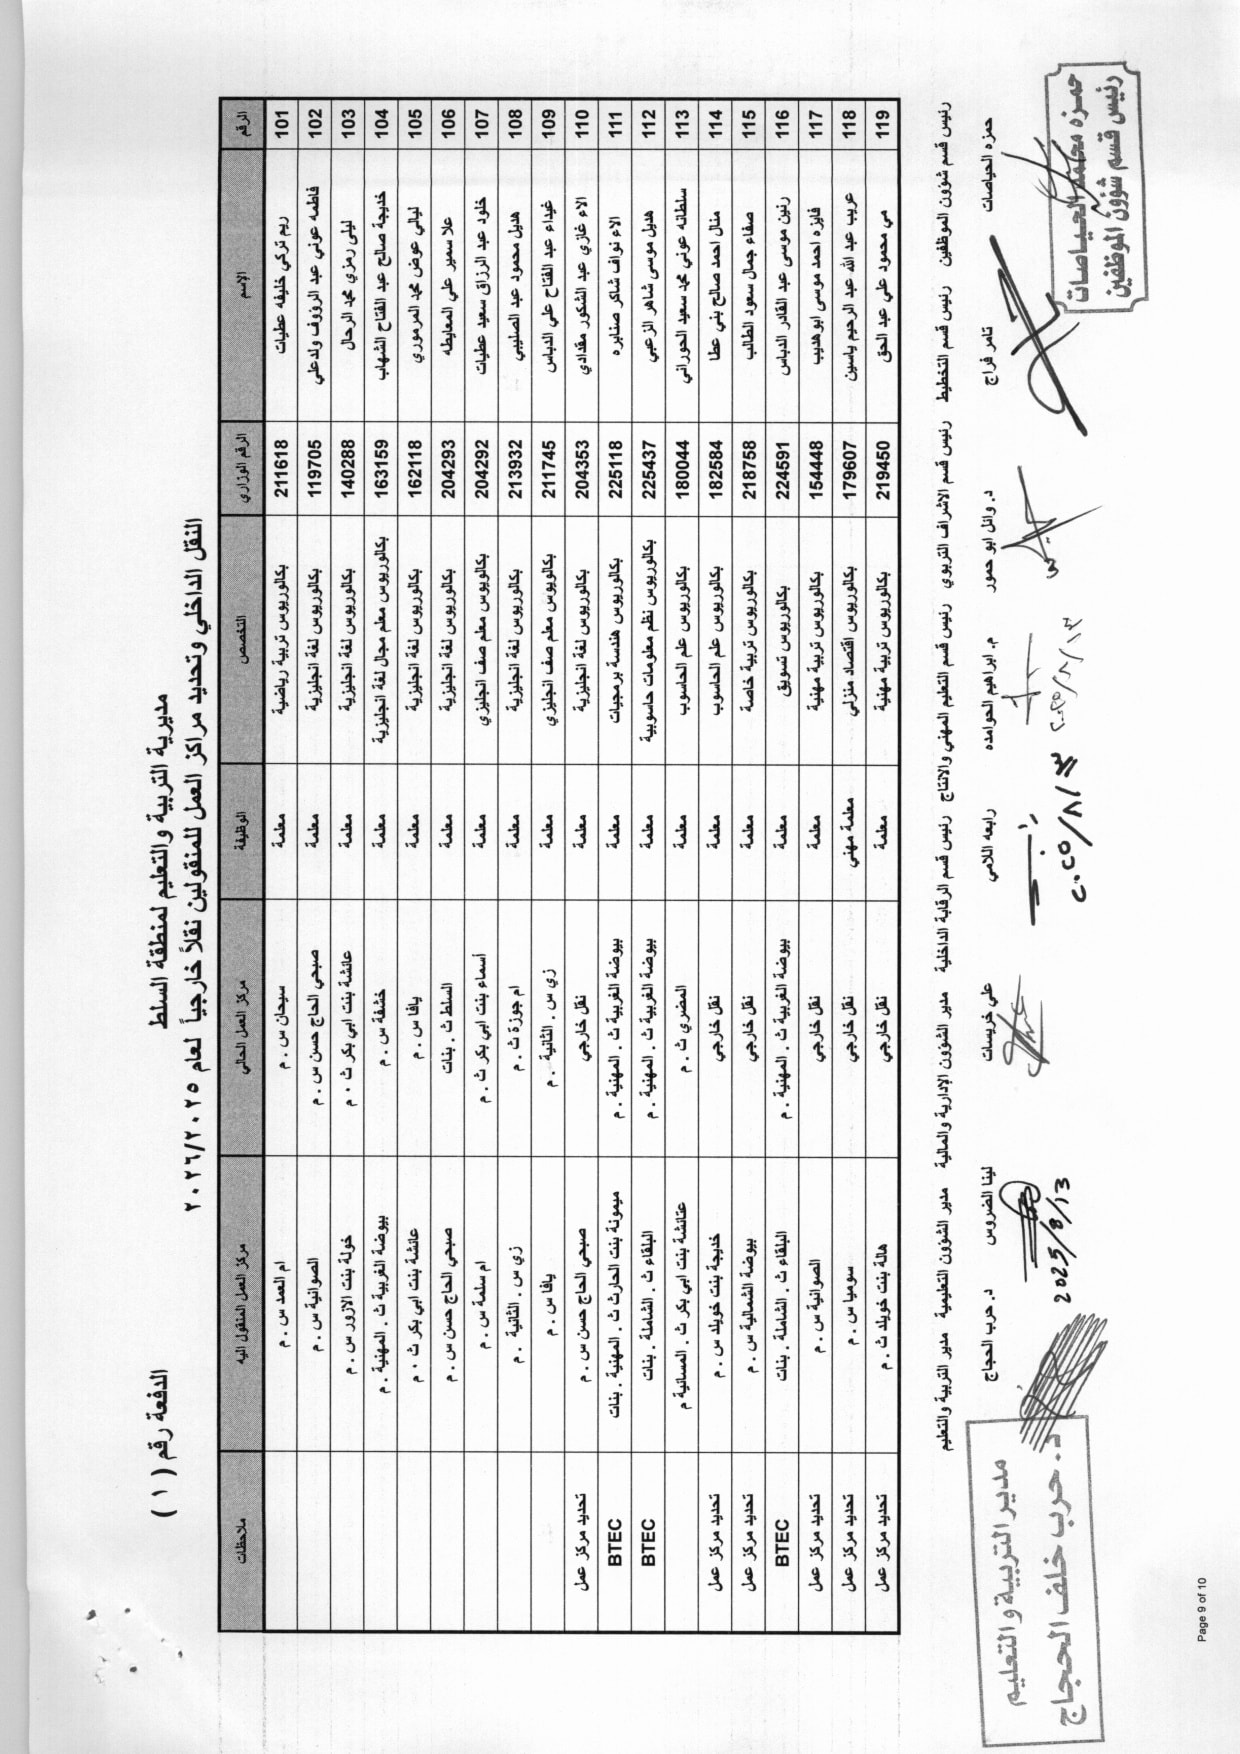 مديرية التربية والتعليم لمنطقة السلط
النقل الداخلي وتحديد مراكز العمل للمنقولين نقلاً خارجياً لعام ٢٠٢٦/٢٠٢٥
الدفعة رقم ( ١ )
الرقم الإسم الرقم الوزاري التخصص الوظيفة مركز العمل الحالي مركز العمل المنقول اليه ملاحظات
101 ريم تركي خليفه عطيات 211618 بكالوريوس تربية رياضية معلمة سيحان س . م ام العمد س . م
102 فاطمه عوني عبد الرؤوف ولدعلي 119705 بكالوريوس لغة انجليزية معلمة صبحي الحاج حسن س . م الصوانية س . م
103 ليلى رمزي محمد الرحال 140288 بكالوريوس لغة انجليزية معلمة عائشة بنت ابي بكر ث . م خولة بنت الازور س . م
104 خديجه صالح عبد الفتاح الشهاب 163159 بكالوريوس معلم مجال لغة انجليزية معلمة خشفة س . م بيوضة الغربية ث . المهنية . م
105 ليالي عوض محمد المرموري 162118 بكالوريوس لغة انجليزية معلمة يافا س . م عائشة بنت ابي بكر ث . م
106 علا سمير علي المعايطه 204293 بكالوريوس لغة انجليزية معلمة السلط ث . بنات صبحي الحاج حسن س . م
107 خلود عبد الرزاق سعيد عطيات 204292 بكالويوس معلم صف انجليزي معلمة أسماء بنت ابي بكر ث . م ام سلمة س . م
108 هديل محمود عبد الصليبي 213932 بكالوريوس لغة انجليزية معلمة ام جوزة ث . م زي س . الثانية . م
109 غيداء عبد الفتاح علي الدباس 211745 بكالويوس معلم صف انجليزي معلمة زي س . الثانية . م يافا س . م
110 الاء غازي عبد الشكور مقدادي 204353 بكالوريوس لغة انجليزية معلمة نقل خارجي صبحي الحاج حسن س . م تحديد مركز عمل
111 الاء نواف شاكر صنابره 225118 بكالوريوس هندسة برمجيات معلمة بيوضة الغربية ث . المهنية . م ميمونة بنت الحارث ث . المهنية . بنات BTEC
112 هديل موسى شاهر الزعبي 225437 بكالوريوس نظم معلومات حاسوبية معلمة بيوضة الغربية ث . المهنية . م البلقاء ث . الشاملة . بنات BTEC
113 سلطانه عوني محمد سعيد الحوراني 180044 بكالوريوس علم الحاسوب معلمة المضري ث . م عتائشة بنت ابي بكر ث . المسائية م
114 منال احمد صالح بني عطا 182584 بكالوريوس علم الحاسوب معلمة نقل خارجي خديجة بنت خويلد س . م تحديد مركز عمل
115 صفاء جمال سعود الطالب 218758 بكالوريوس تربية خاصة معلمة نقل خارجي بيوضة الشمالية س . م تحديد مركز عمل
116 رنين موسى عبد القادر الدباس 224591 بكالوريوس تسويق معلمة بيوضة الغربية ث . المهنية . م البلقاء ث . الشاملة . بنات BTEC
117 فايزه احمد موسى ابوهديب 154448 بكالوريوس تربية مهنية معلمة نقل خارجي الصوانية س . م تحديد مركز عمل
118 عريب عبد الله عبد الرحيم ياسين 179607 بكالوريوس اقتصاد منزلي معلمة مهني نقل خارجي سوميا س . م تحديد مركز عمل
119 مي محمود علي عبد الحق 219450 بكالوريوس تربية مهنية معلمة نقل خارجي هالة بنت خويلد ث . م تحديد مركز عمل
رئيس قسم شؤون الموظفين رئيس قسم التخطيط رئيس قسم الاشراف التربوي رئيس قسم التعليم المهني والانتاج رئيس قسم الرقابة الداخلية مدير الشؤون الإدارية والمالية مدير الشؤون التعليمية مدير التربية والتعليم
حمزه الحياصات تامر فراج د. وائل ابو حمور م. ابراهيم الحوامده رابعه اللامي علي خريسات لينا الضروس د. حرب الحجاج
٢٠٢٥/٨/١٣
٢٠٢٥/٨/١٣
2025/8/13
حمزه محمد الحياصات
رئيس قسم شؤون الموظفين
مدير التربية والتعليم
د. حرب خلف الحجاج
Page 9 of 10